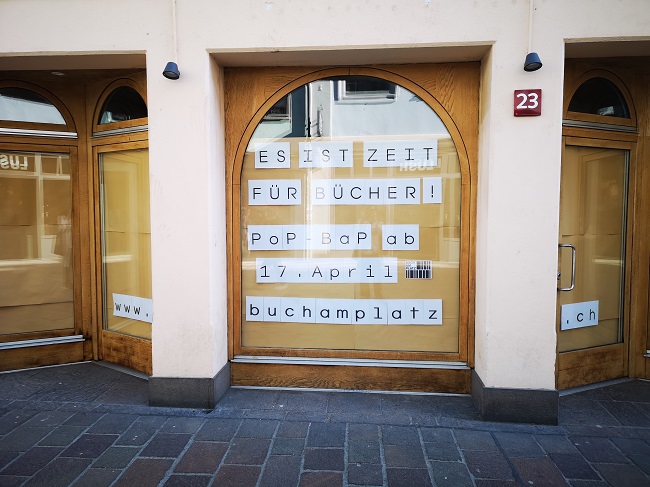 23
LUSH
LUSH
ES IST ZEIT
FÜR BÜCHER!
PoP-BaP ab
17.April
www. buchamplatz .ch